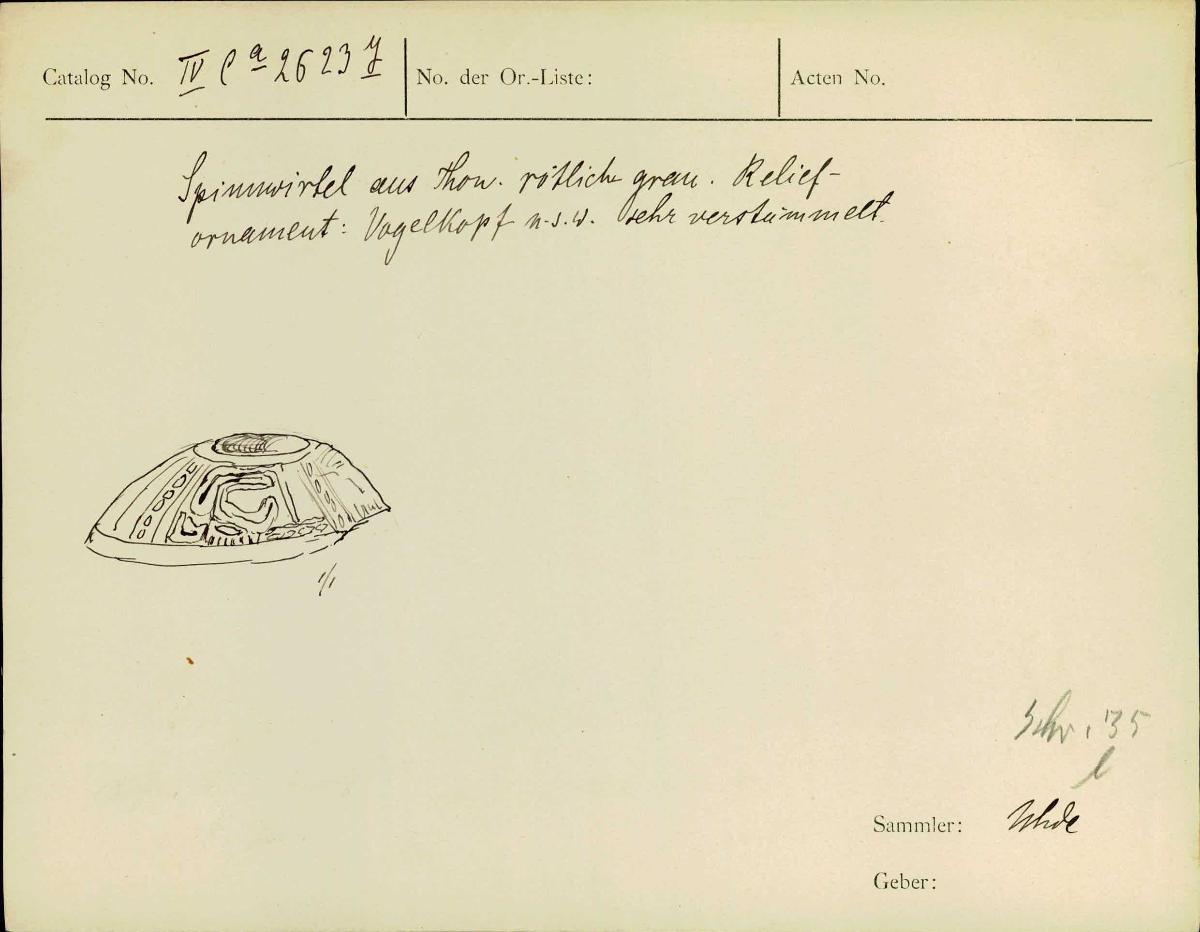 Catalog No. IV Ca 2623 y
No. der Or.-Liste:
Acten No.
Spinnwirtel aus Thon. rötlich grau. Relief-
ornament: Vogelkopf u.s.w. sehr verstümmelt.
1/1
Schr. 35
l
Sammler: Uhde
Geber: